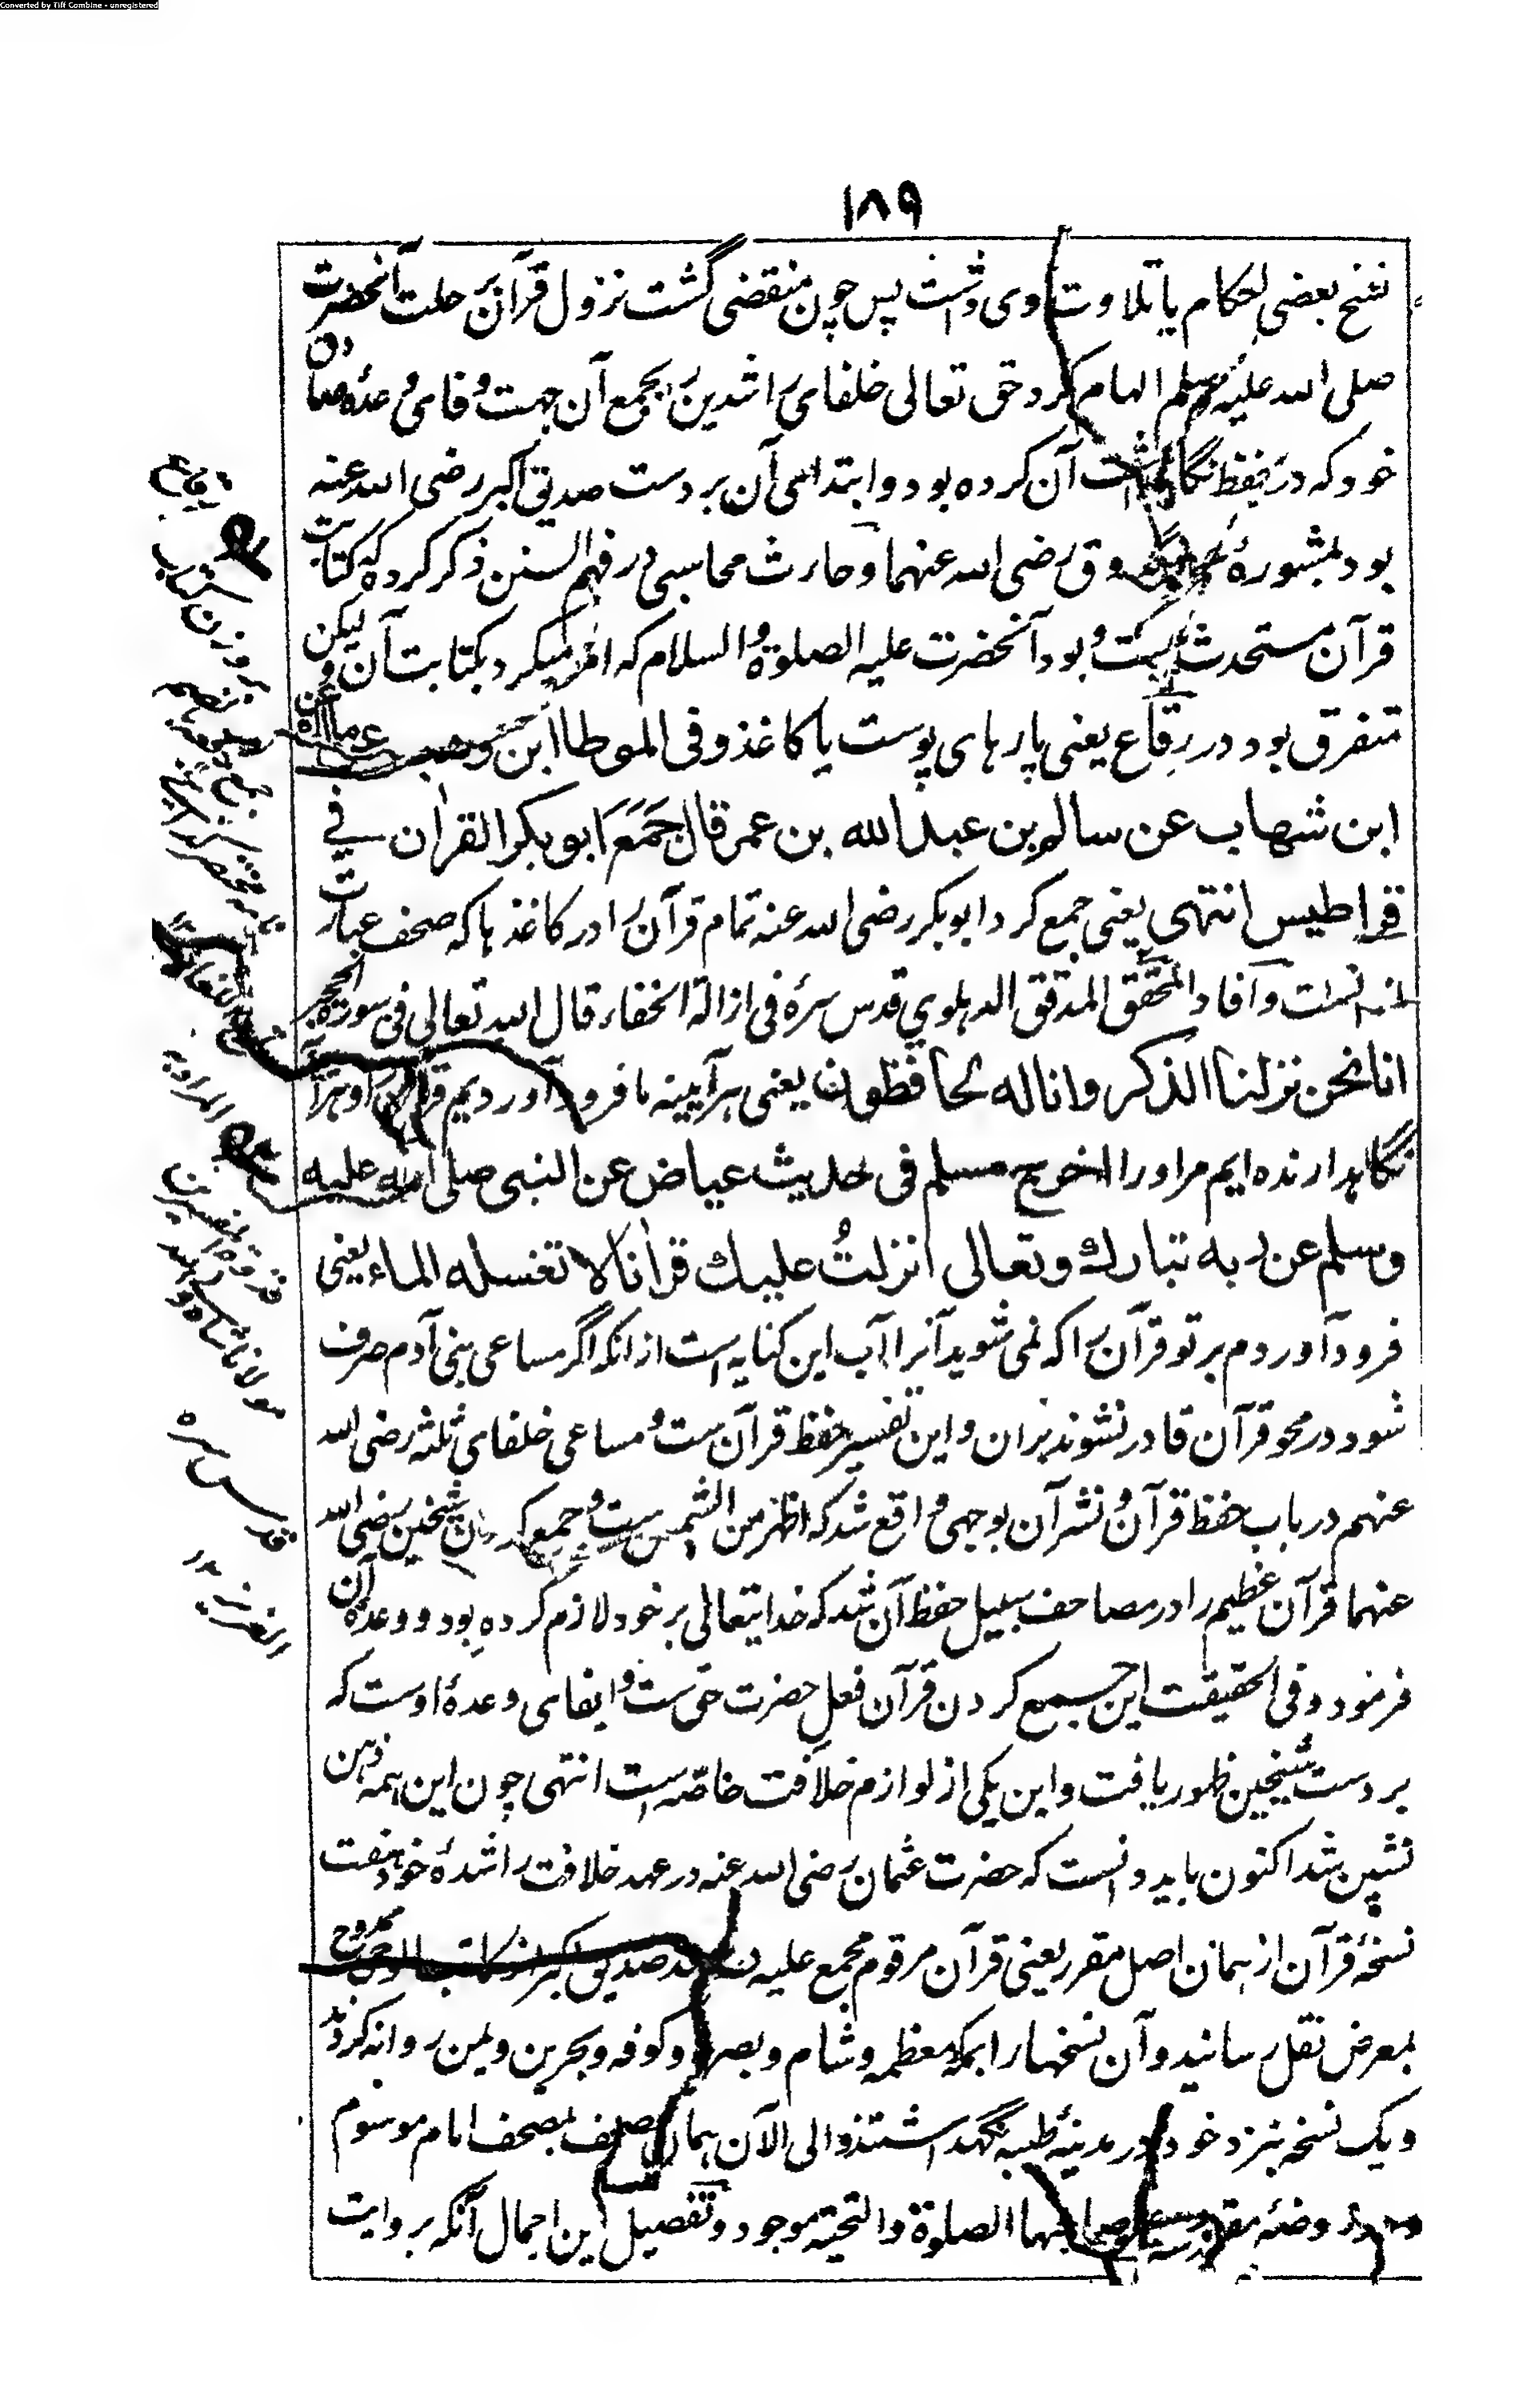 Converted by Tiff Combine - unregistered
۱۸۹
نسخ بعضی احکام یا تلاوت وی داشت پس چون منقضی گشت نزول قرآن برحلت آنحضرت
صلی الله علیه وسلم الهام کرد حق تعالی خلفای راشدین را بجمع آن جهت وفای وعدهٔ صادق
خود که در حفظ نگاهداشت آن کرده بود و ابتدای آن بر دست صدیق اکبر رضی الله عنه
بود بمشورهٔ عمر فاروق رضی الله عنهما و حارث محاسبی در فهم السنن ذکر کرده که کتابت
قرآن مستحدث نیست و بود آنحضرت علیه الصلوة والسلام که امر میکرد بکتابت آن ولیکن
متفرق بود در رقاع یعنی پارهای پوست یا کاغذ و فی الموطا ابن وهب عن مالک عن
ابن شهاب عن سالم بن عبد الله بن عمر قال جَمَعَ ابو بکر القران فی
قراطیس انتهی یعنی جمع کرد ابوبکر رضی الله عنه تمام قرآن را در کاغذ ها که صحف عبارت
ازانست و آفاد المحقق المدقق الدهلوي قدس سره فی ازالة الخفاء قال الله تعالی فی سورة الحجر
انا نحن نزلنا الذکر وانا له لحافظون یعنی هرآیینه ما فرود آوردیم قرآن را و هرآیینه
نگاهدارنده ایم مراورا اخرج مسلم فی حدیث عیاض عن النبی صلی الله علیه
وسلم عن ربه تبارك وتعالی انزلتُ علیك قرانا لا تغسله الماء یعنی
فرود آوردم بر تو قرآن را که نمی شوید آنرا آب این کنایه است ازانکه اگر مساعی بنی آدم صرف
شود در محو قرآن قادر نشوند بران و این تفسیر حفظ قرآن ست و مساعی خلفای ثلثه رضی الله
عنهم در باب حفظ قرآن و نشر آن بوجهی واقع شد که اظهر من الشمس ست و جمع کردن شیخین رضی الله
عنهما قرآن عظیم را در مصاحف سبیل حفظ آن شد که خدایتعالی بر خود لازم کرده بود و وعدهٔ آن
فرمود و فی الحقیقت این جمع کردن قرآن فعل حضرت حق ست و ایفای وعدهٔ اوست که
بر دست شیخین ظهور یافت و این یکی از لوازم خلافت خاصّه است انتهی چون این همه ذهن
نشین شد اکنون باید دانست که حضرت عثمان رضی الله عنه در عهد خلافت راشدهٔ خود هفت
نسخهٔ قرآن از همان اصل مقرر یعنی قرآن مرقوم مجمع علیه صدیق اکبر از کاتب الوحی ممدوح
بمعرض نقل رسانید و آن نسخها را بمکهٔ معظمه و شام و بصره و کوفه و بحرین و یمن روانه کردند
و یک نسخه بنزد خود در مدینهٔ طیبه نگهداشتند و الی الآن همان مصحف بمصحف امام موسوم
و در روضهٔ مقدسه علی صاحبها الصلوة والتحیة موجود و تفصیل این اجمال آنکه بروایت
رقاع
المراد به
مولانا شاه
قدس سره
العزیز ۱۲